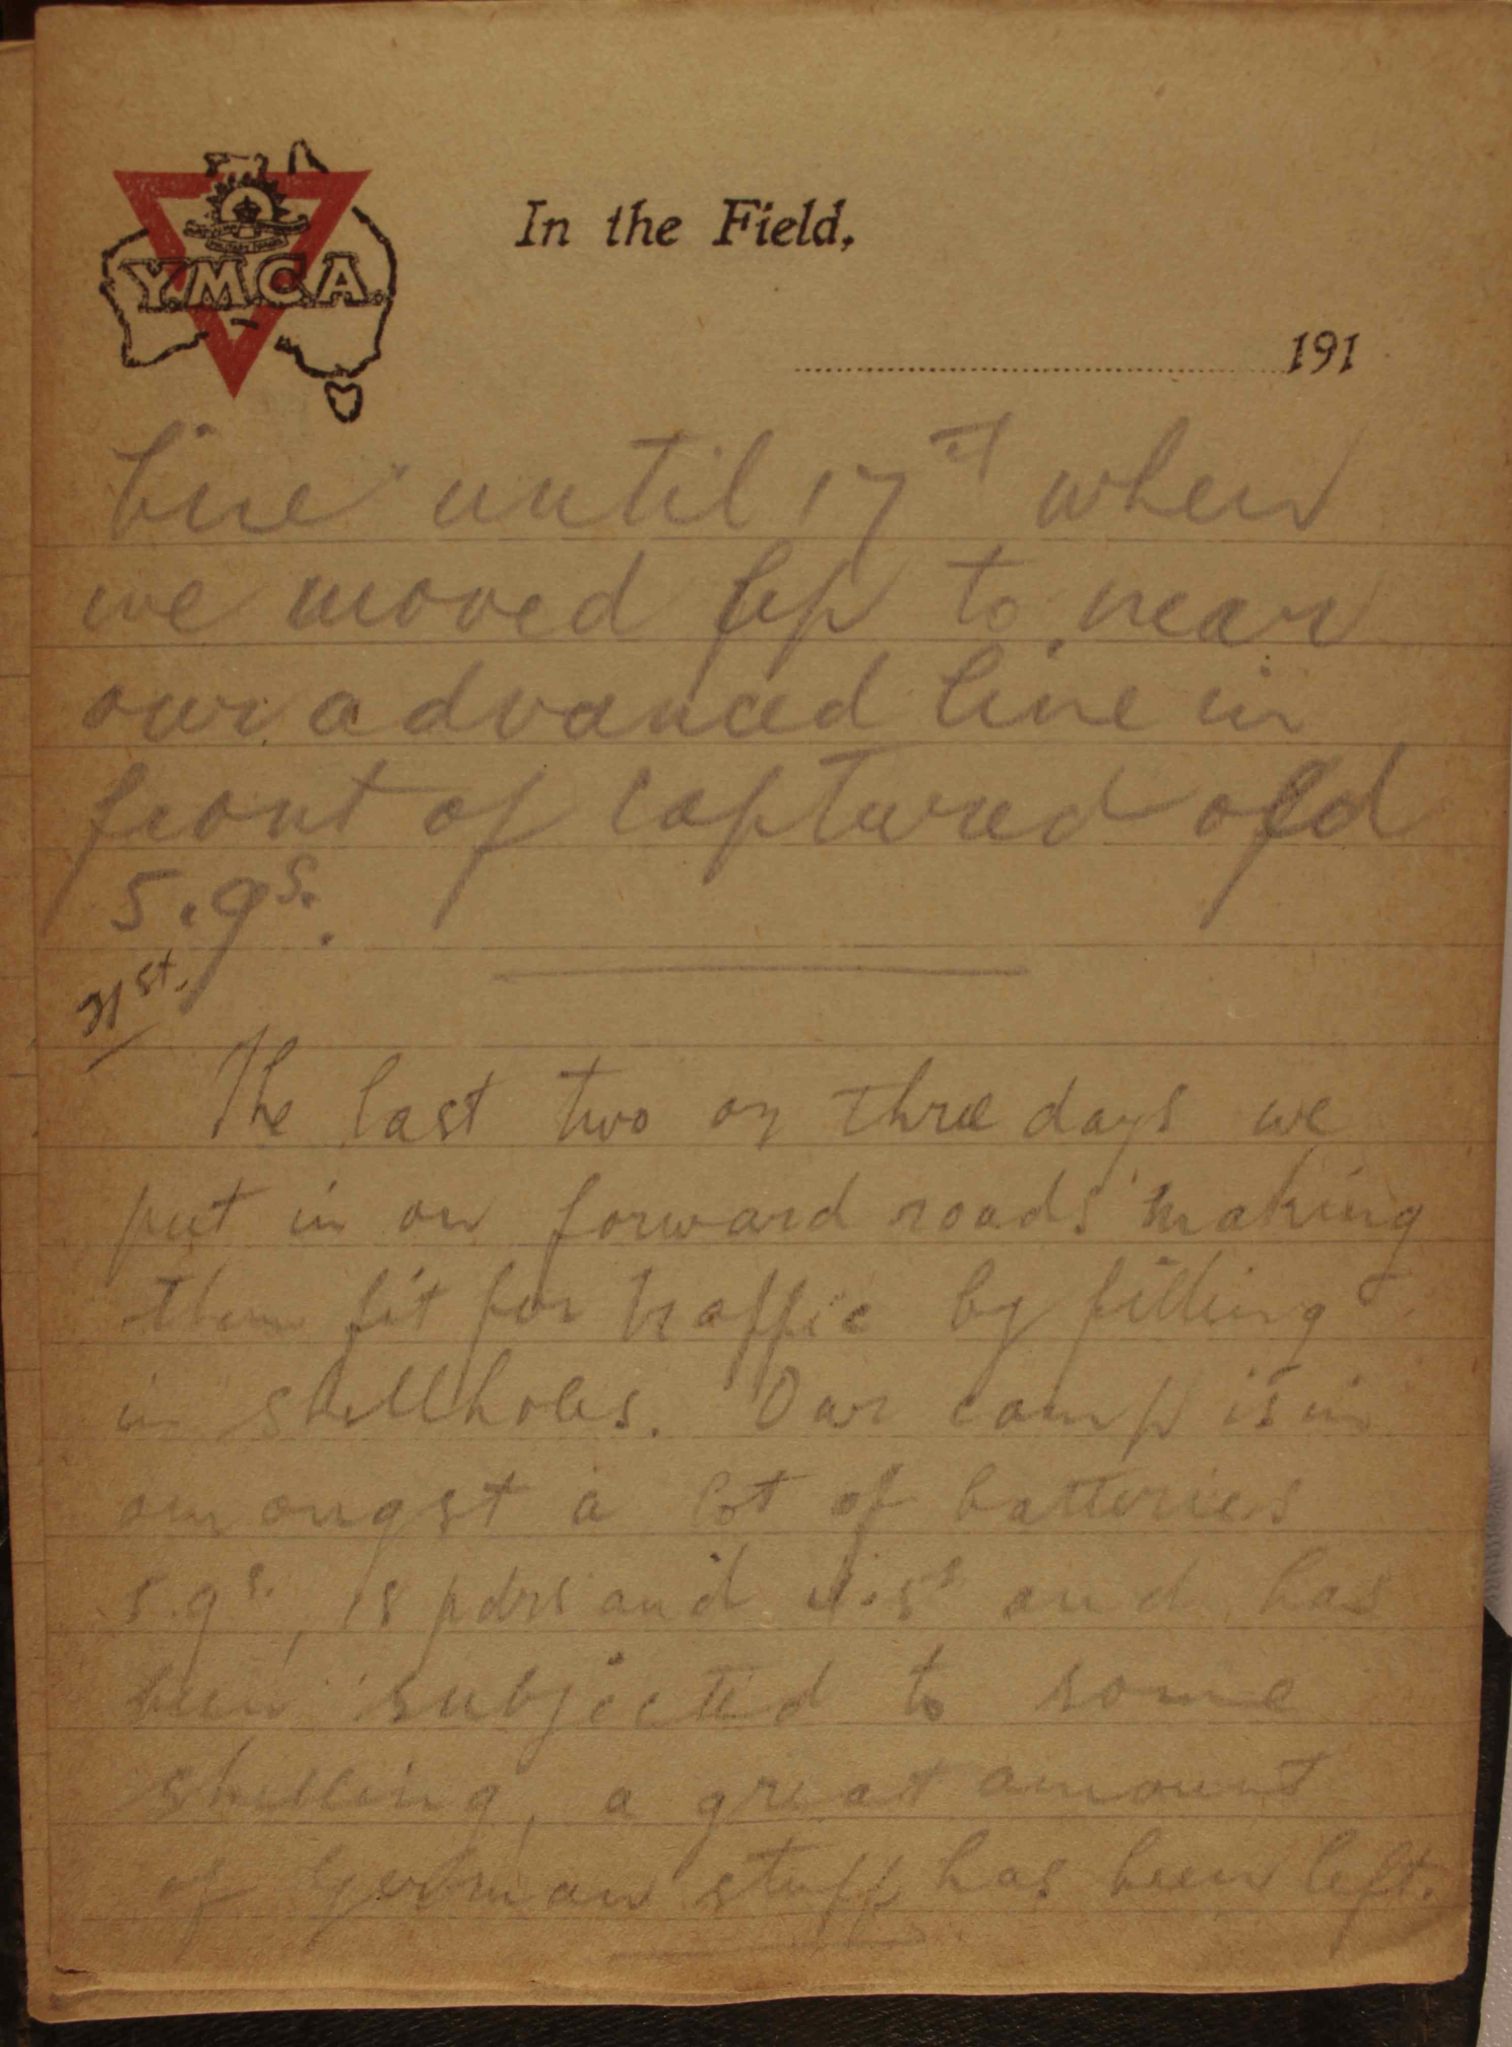 Y.M.C.A.
In the Field,
191
line until 17th when
we moved up to near
our advanced line in
front of captured old
5.9s.
31st.
The last two or three days we
put in on forward roads making
them fit for traffic by filling
in shellholes. Our camp is in
amongst a lot of batteries
5.9s., 18 pdrs and 4.5s and has
been subjected to some
shelling, a great amount
of German stuff has been left.